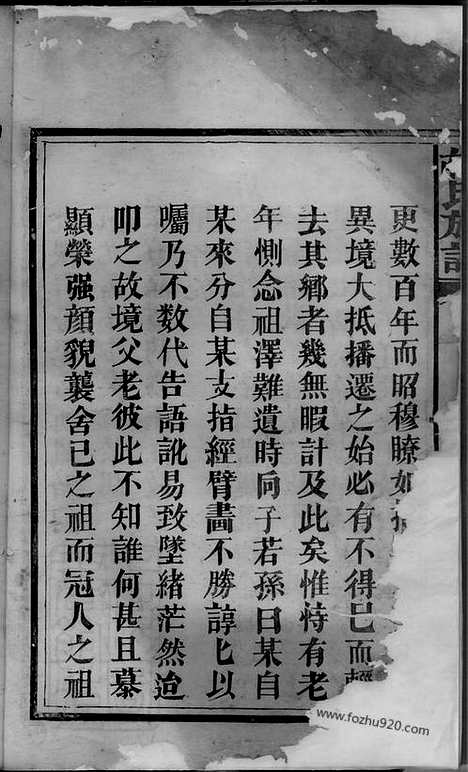 氏族譜
更數百年而昭穆瞭如
異境大抵播遷之始必有不得已而輕
去其鄉者幾無暇計及此矣惟恃有老
年惻念祖澤難遺時向子若孫曰某自
某來分自某支指經臂畵不勝諄匕以
囑乃不数代告語訛易致墜緒茫然迨
叩之故境父老彼此不知誰何甚且慕
顯榮强顔貌襲舍已之祖而冠人之祖
www.fozhu920.com